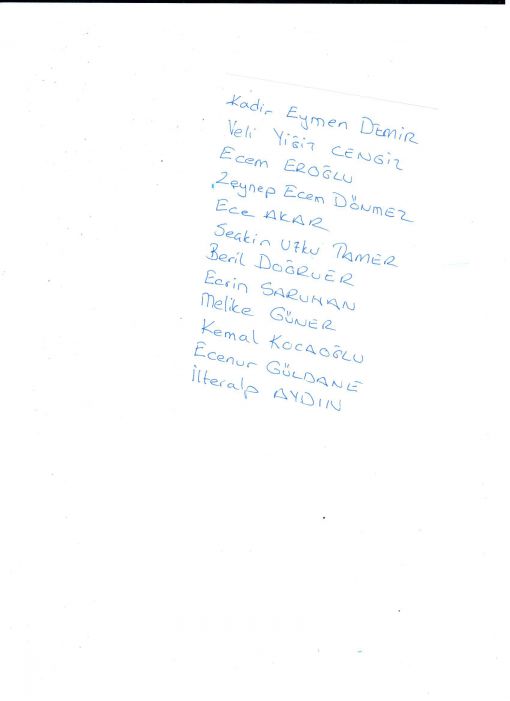 Kadir Eymen DEMİR
Veli Yiğit CENGİZ
Ecem EROĞLU
Zeynep Ecem DÖNMEZ
Ece AKAR
Seçkin Utku TAMER
Beril DOĞRUER
Ecrin SARUHAN
Melike GÜNER
Kemal KOCAOĞLU
Ecenur GÜLDANE
İlteralp AYDIN